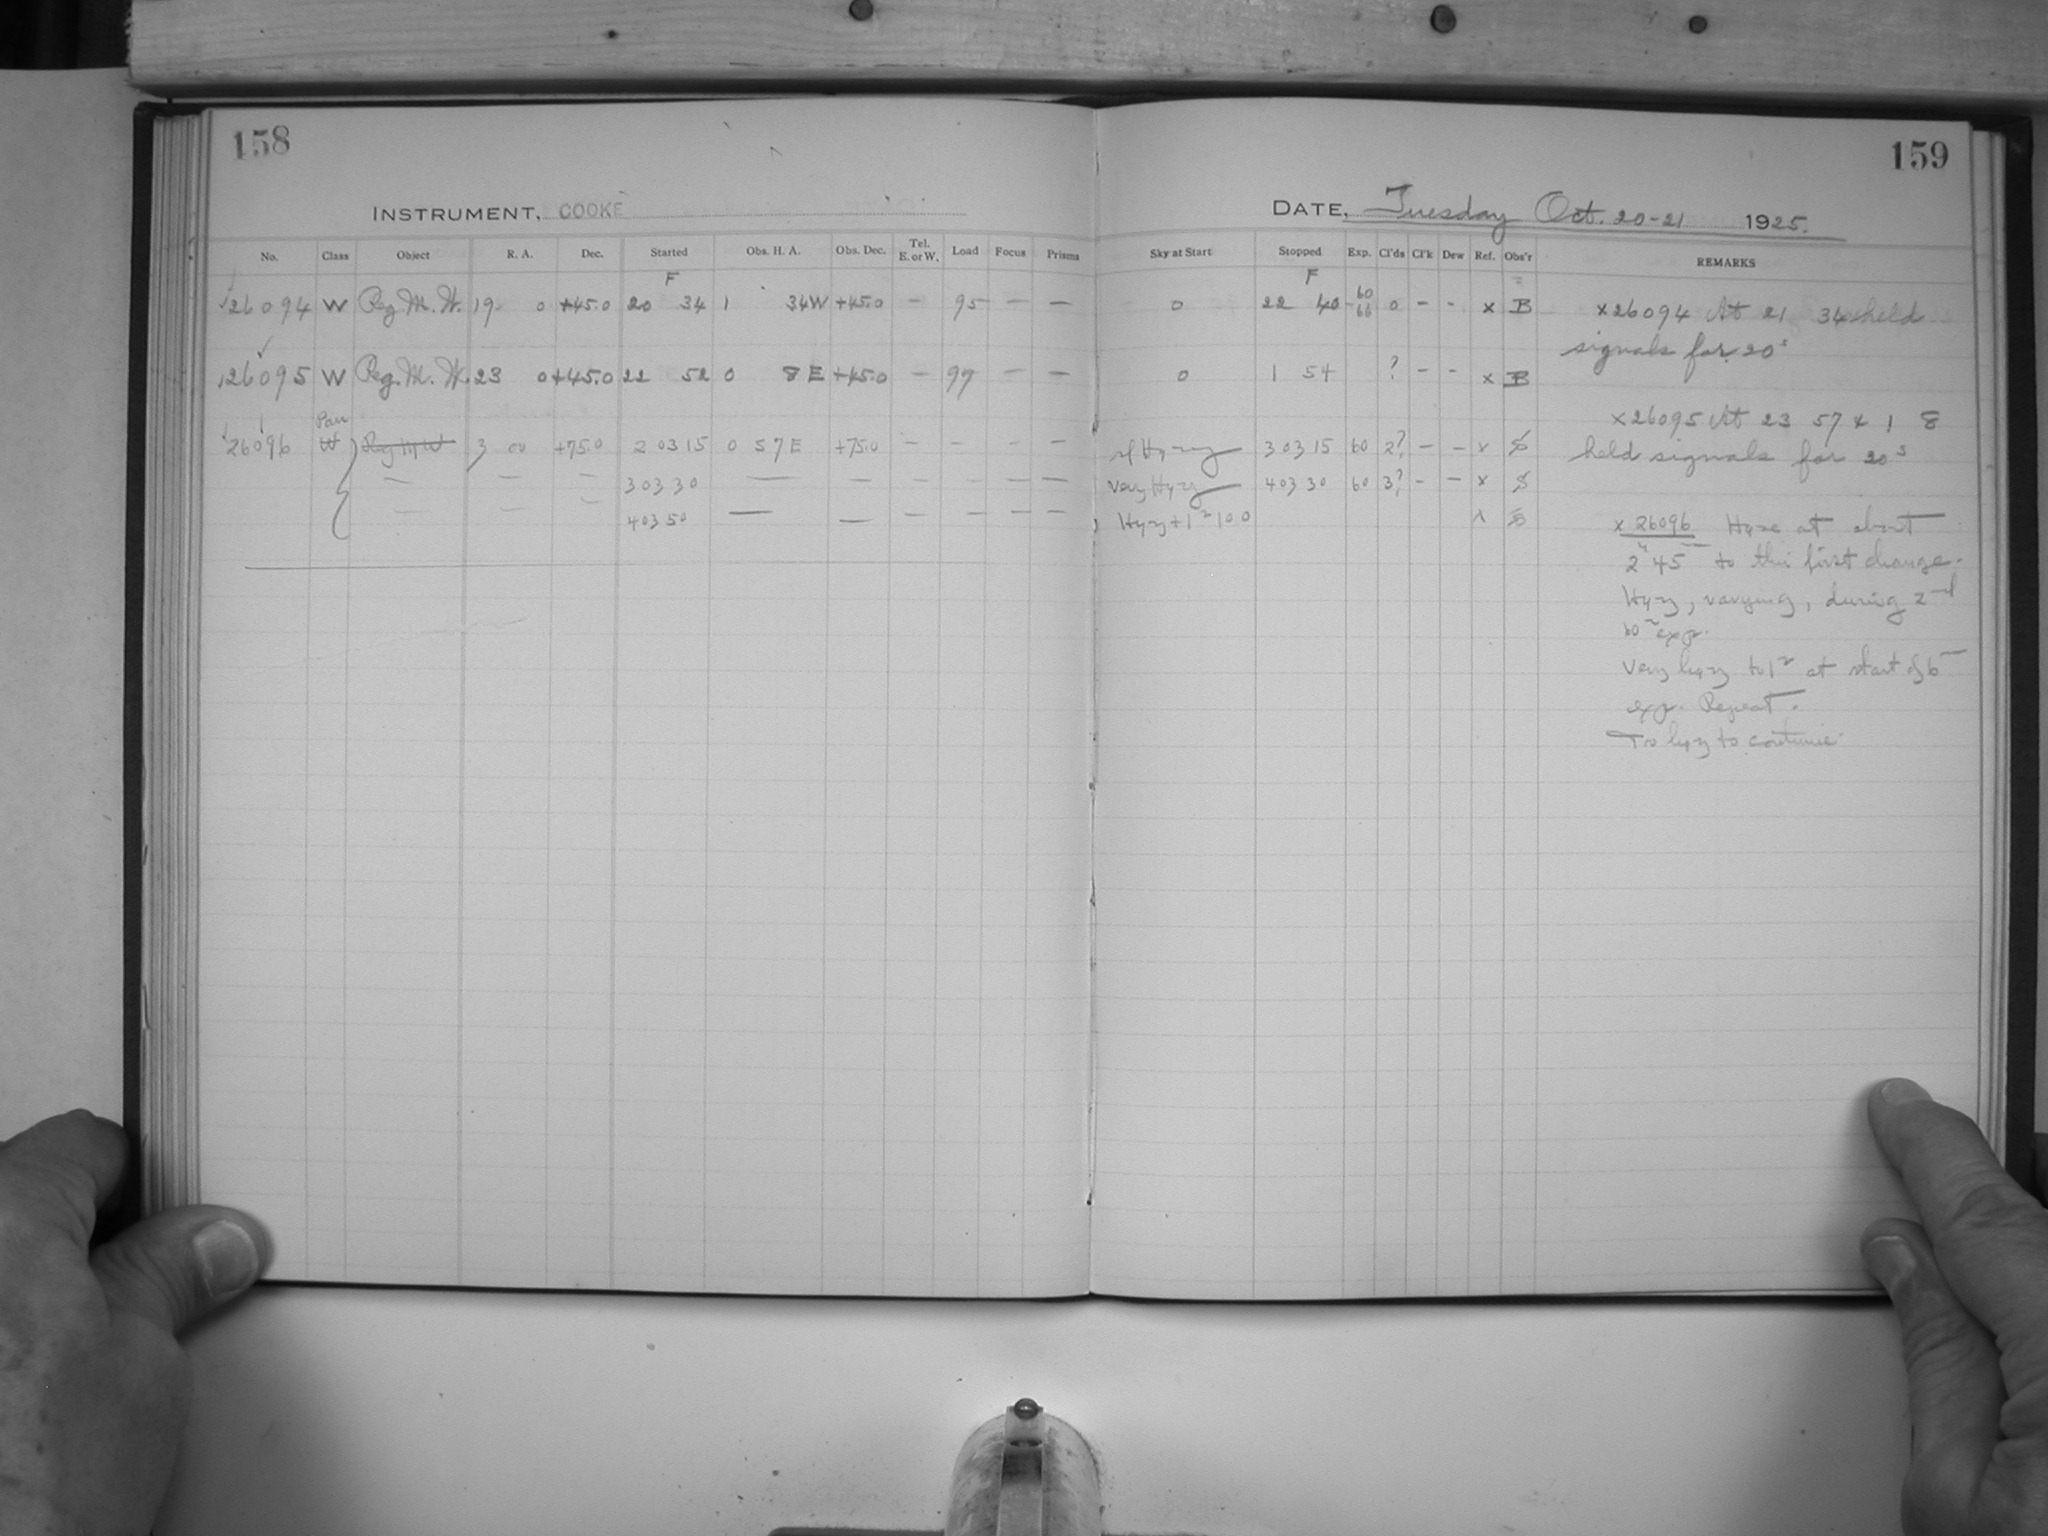 158
159
INSTRUMENT, COOKE
DATE, Tuesday Oct. 20-21 1925.
No. Class Object R. A. Dec. Started Obs. H. A. Obs. Dec. Tel. E. or W. Load Focus Prisms Sky at Start Stopped Exp. Cl'ds Cl'k Dew Ref. Obs'r REMARKS
F F
26094 W Reg. M. W. 19 0 +45.0 20 34 1 34W +45.0 — 95 — — 0 22 40 60 66 0 — - x B
26095 W Reg. M. W. 23 0 +45.0 22 52 0 8 E +45.0 — 97 — — 0 1 54 ? — - x B
26096 W Reg M W 3 00 +75.0 2 03 15 0 57 E +75.0 — — — — sl Hazy 3 03 15 60 2? — — x
— — — 3 03 30 — — — — — — Very Hazy 4 03 30 60 3? - — x
— — — 4 03 50 — — — — — —
x26094 At 21 34 held
signals for 20s
x26095 At 23 57 & 1 8
held signals for 20s
x 26096 Haze at about
2h 45m to this first change.
Hazy, varying, during 2nd
60m exp.
Very hazy to 1m at start of 6m
exp. Repeat.
Too hazy to continue.